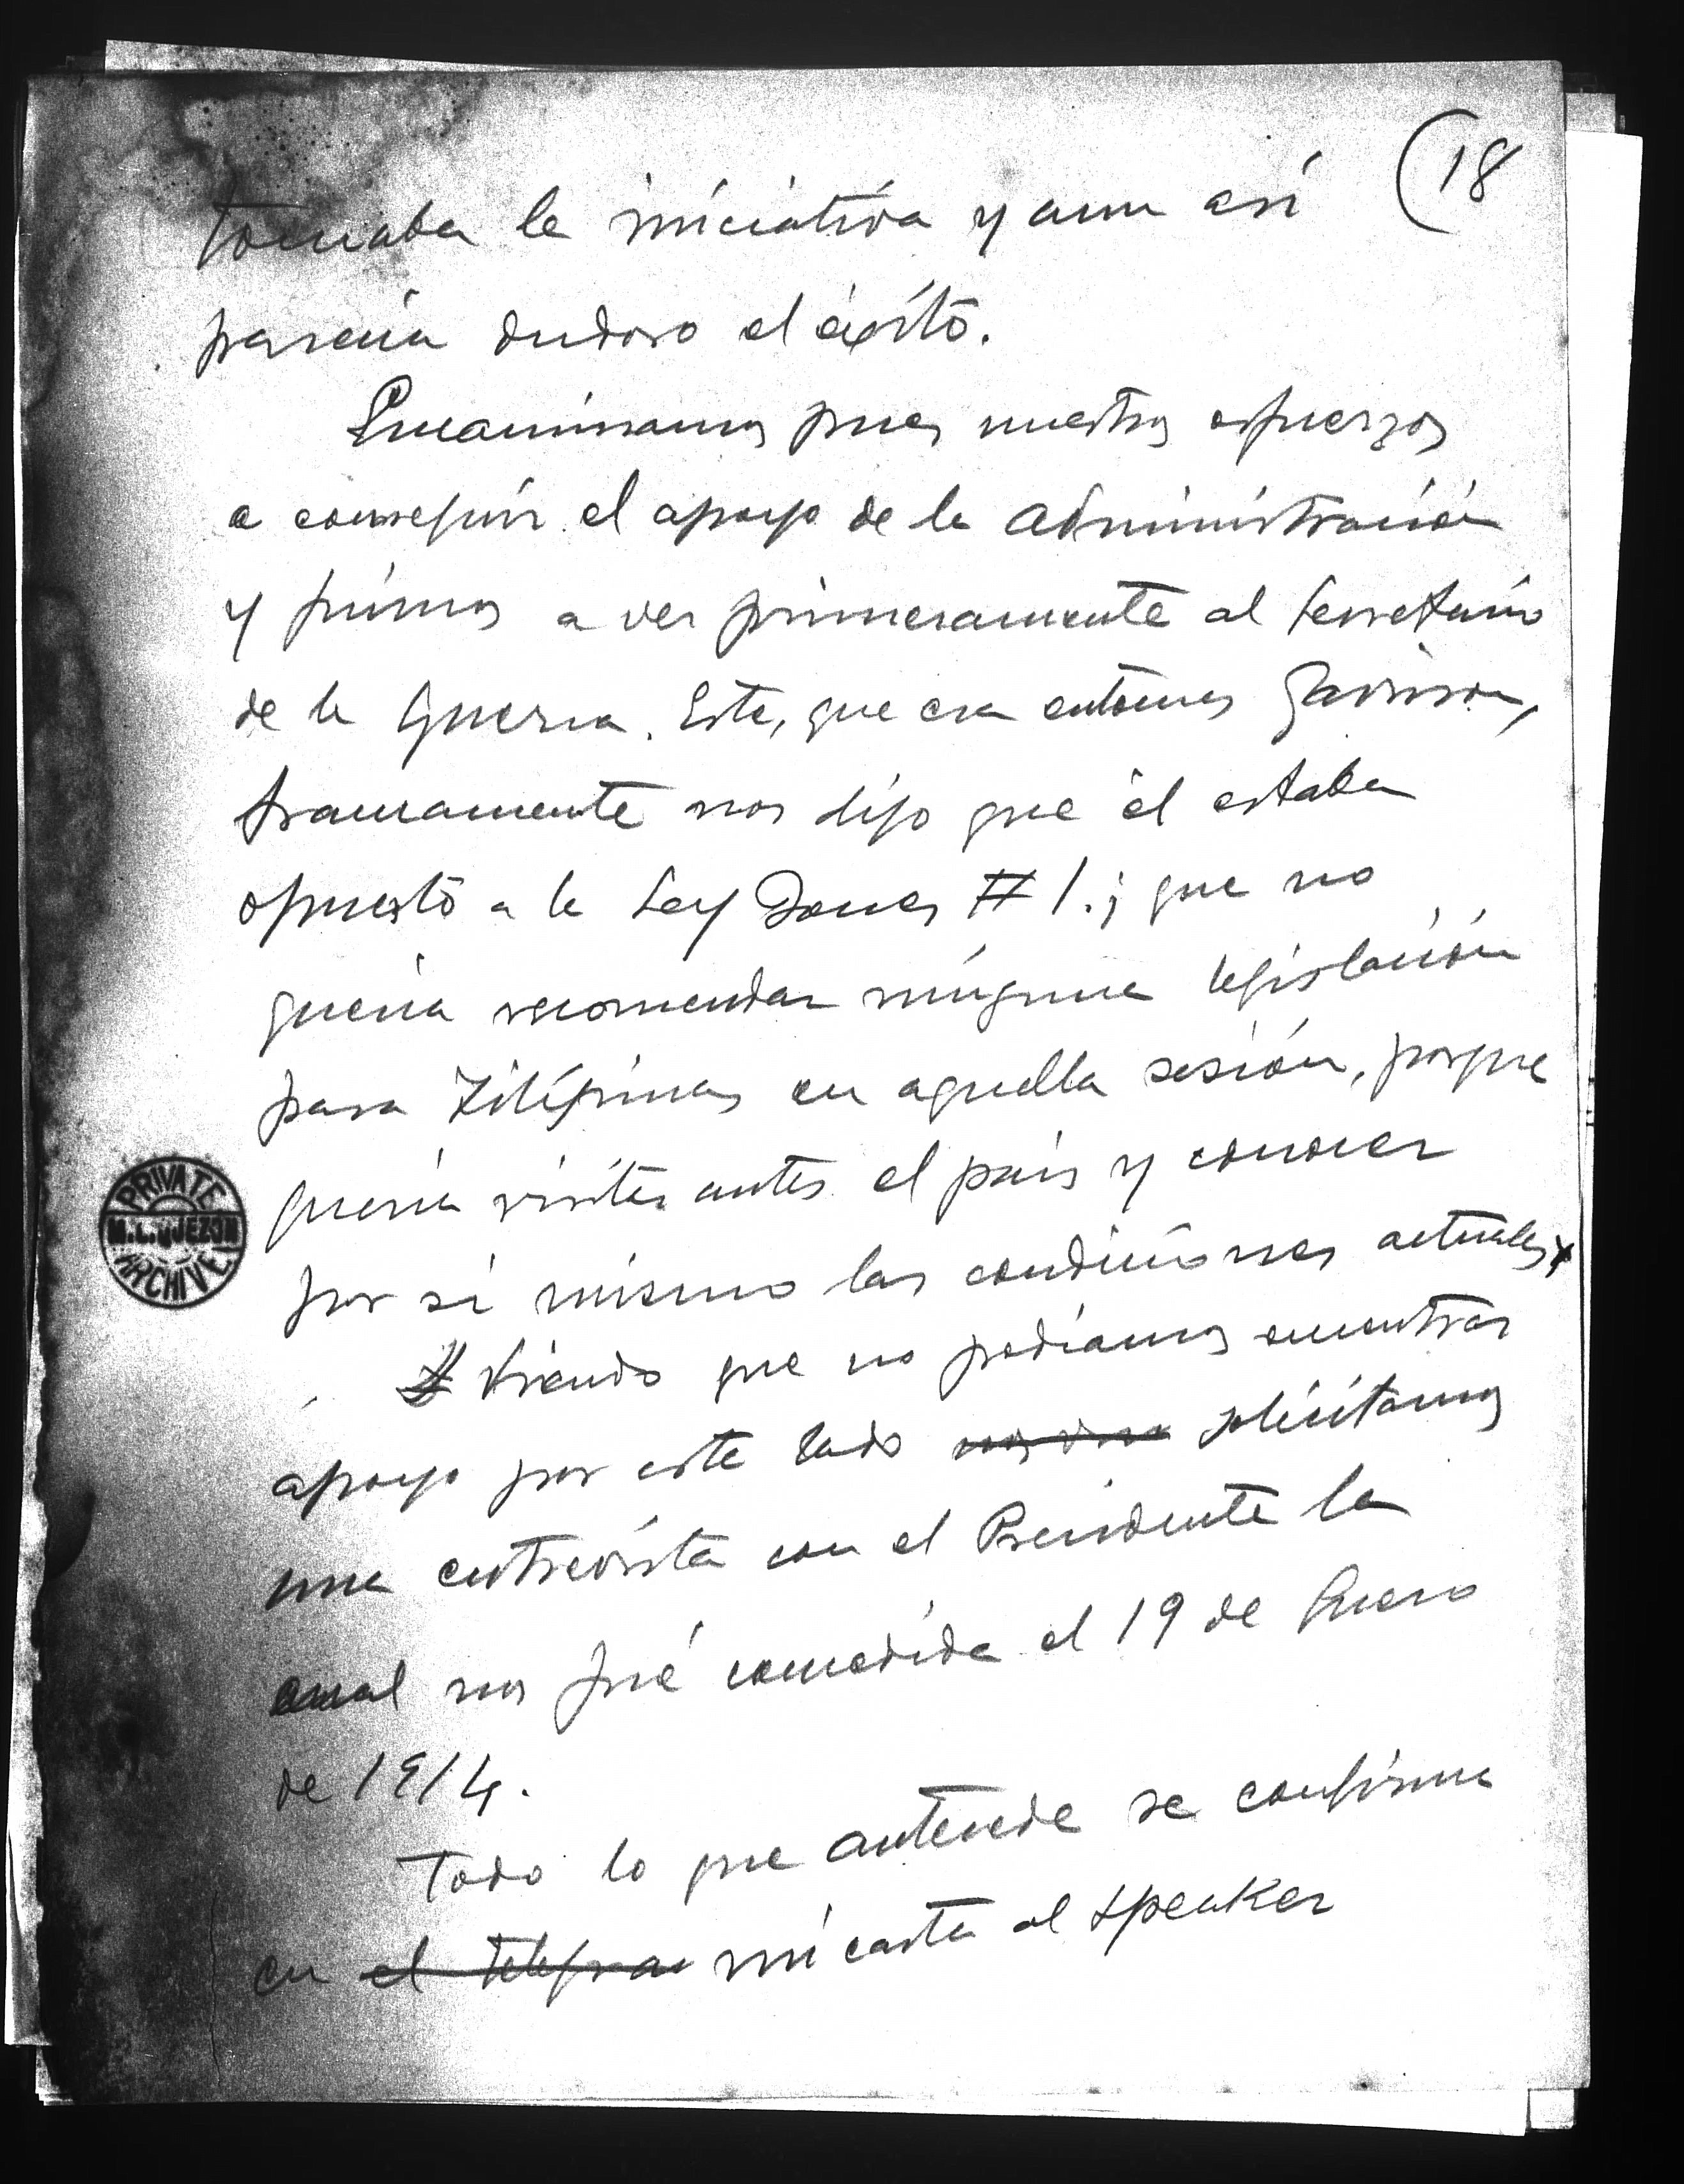 (18
tomaba la iniciativa y aun así
parecía dudoso el éxito.
Encaminamos pues nuestros esfuerzos
a conseguir el apoyo de la administración
y fuimos a ver primeramente al secretario
de la Guerra. Este, que era entonces Garrison,
francamente nos dijo que él estaba
opuesto a la Ley Jones # 1.; que no
quería recomendar ninguna legislación
para Filipinas en aquella sesión, porque
quería visitar antes el país y conocer
por sí mismo las condiciones actuales
Viendo que no podíamos encontrar
apoyo por este lado solicitamos
una entrevista con el Presidente la
cual nos fué concedida el 19 de Enero
de 1914.
Todo lo que antecede se confirma
en el telegrama mi carta al Speaker
PRIVATE
M.L.QUEZON
ARCHIVE